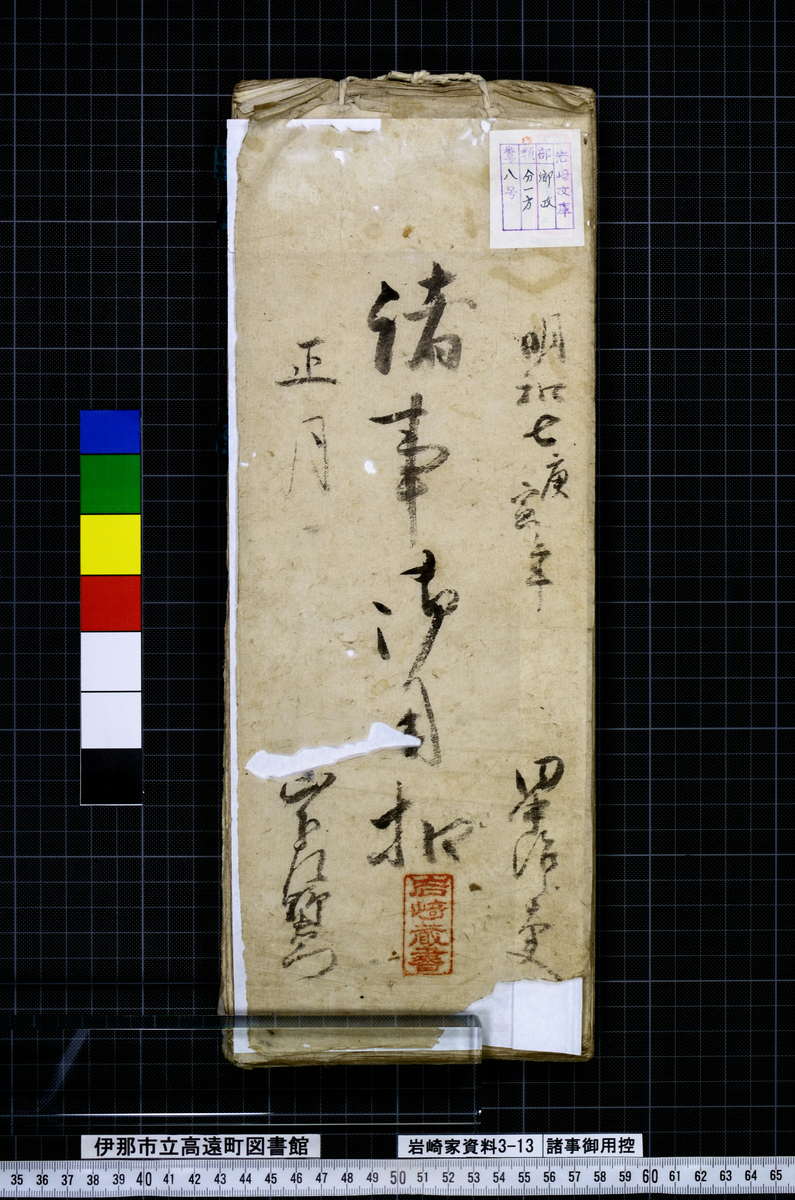 岩崎文庫
部 郷政
類 分一方
號 八号
明和七庚寅年
諸事御用扣
正月
岩崎蔵書
伊那市立高遠町図書館
岩崎家資料3-13
諸事御用控
35 36 37 38 39 40 41 42 43 44 45 46 47 48 49 50 51 52 53 54 55 56 57 58 59 60 61 62 63 64 65